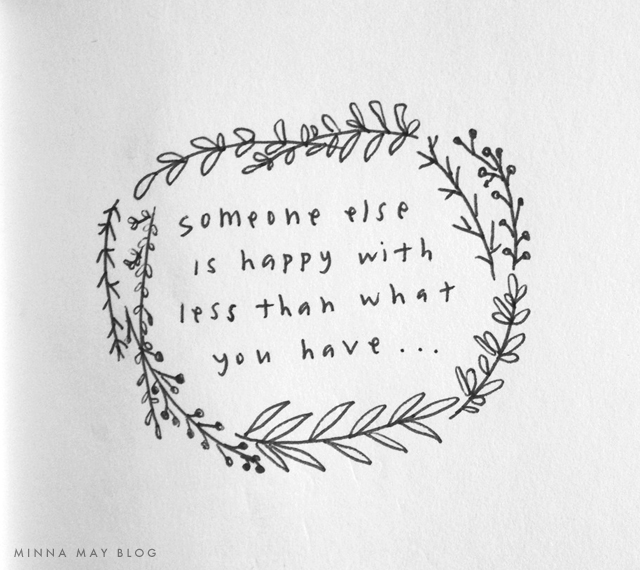 someone else
is happy with
less than what
you have...
MINNA MAY BLOG